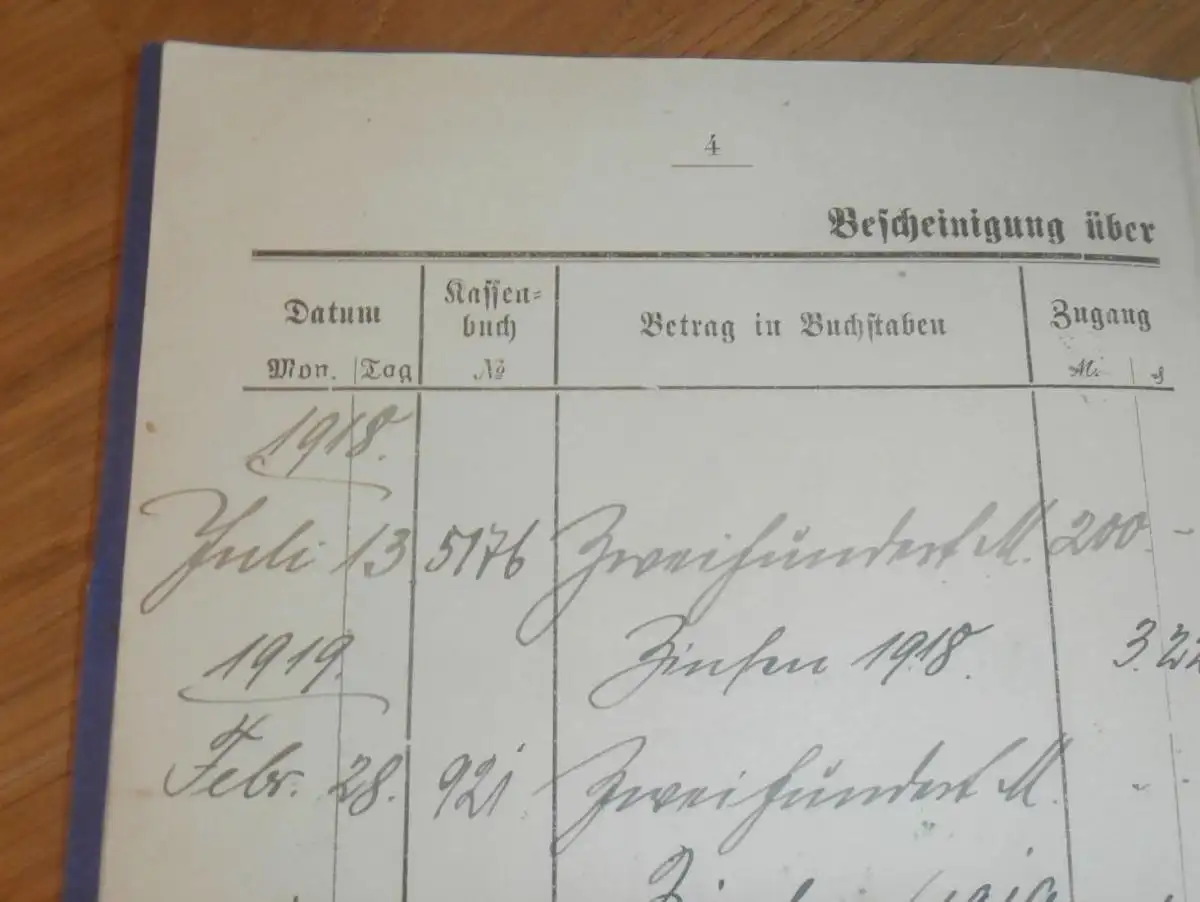 4
Bescheinigung über
Datum
Kassen=
buch
Betrag in Buchstaben
Zugang
Mon. Tag
№
M.
1918.
Juli 13 5176 Zweihundert M. 200.-
1919. Zinsen 1918. 3.22
Febr. 28. 921 Zweihundert M. - -
Zinsen 1919